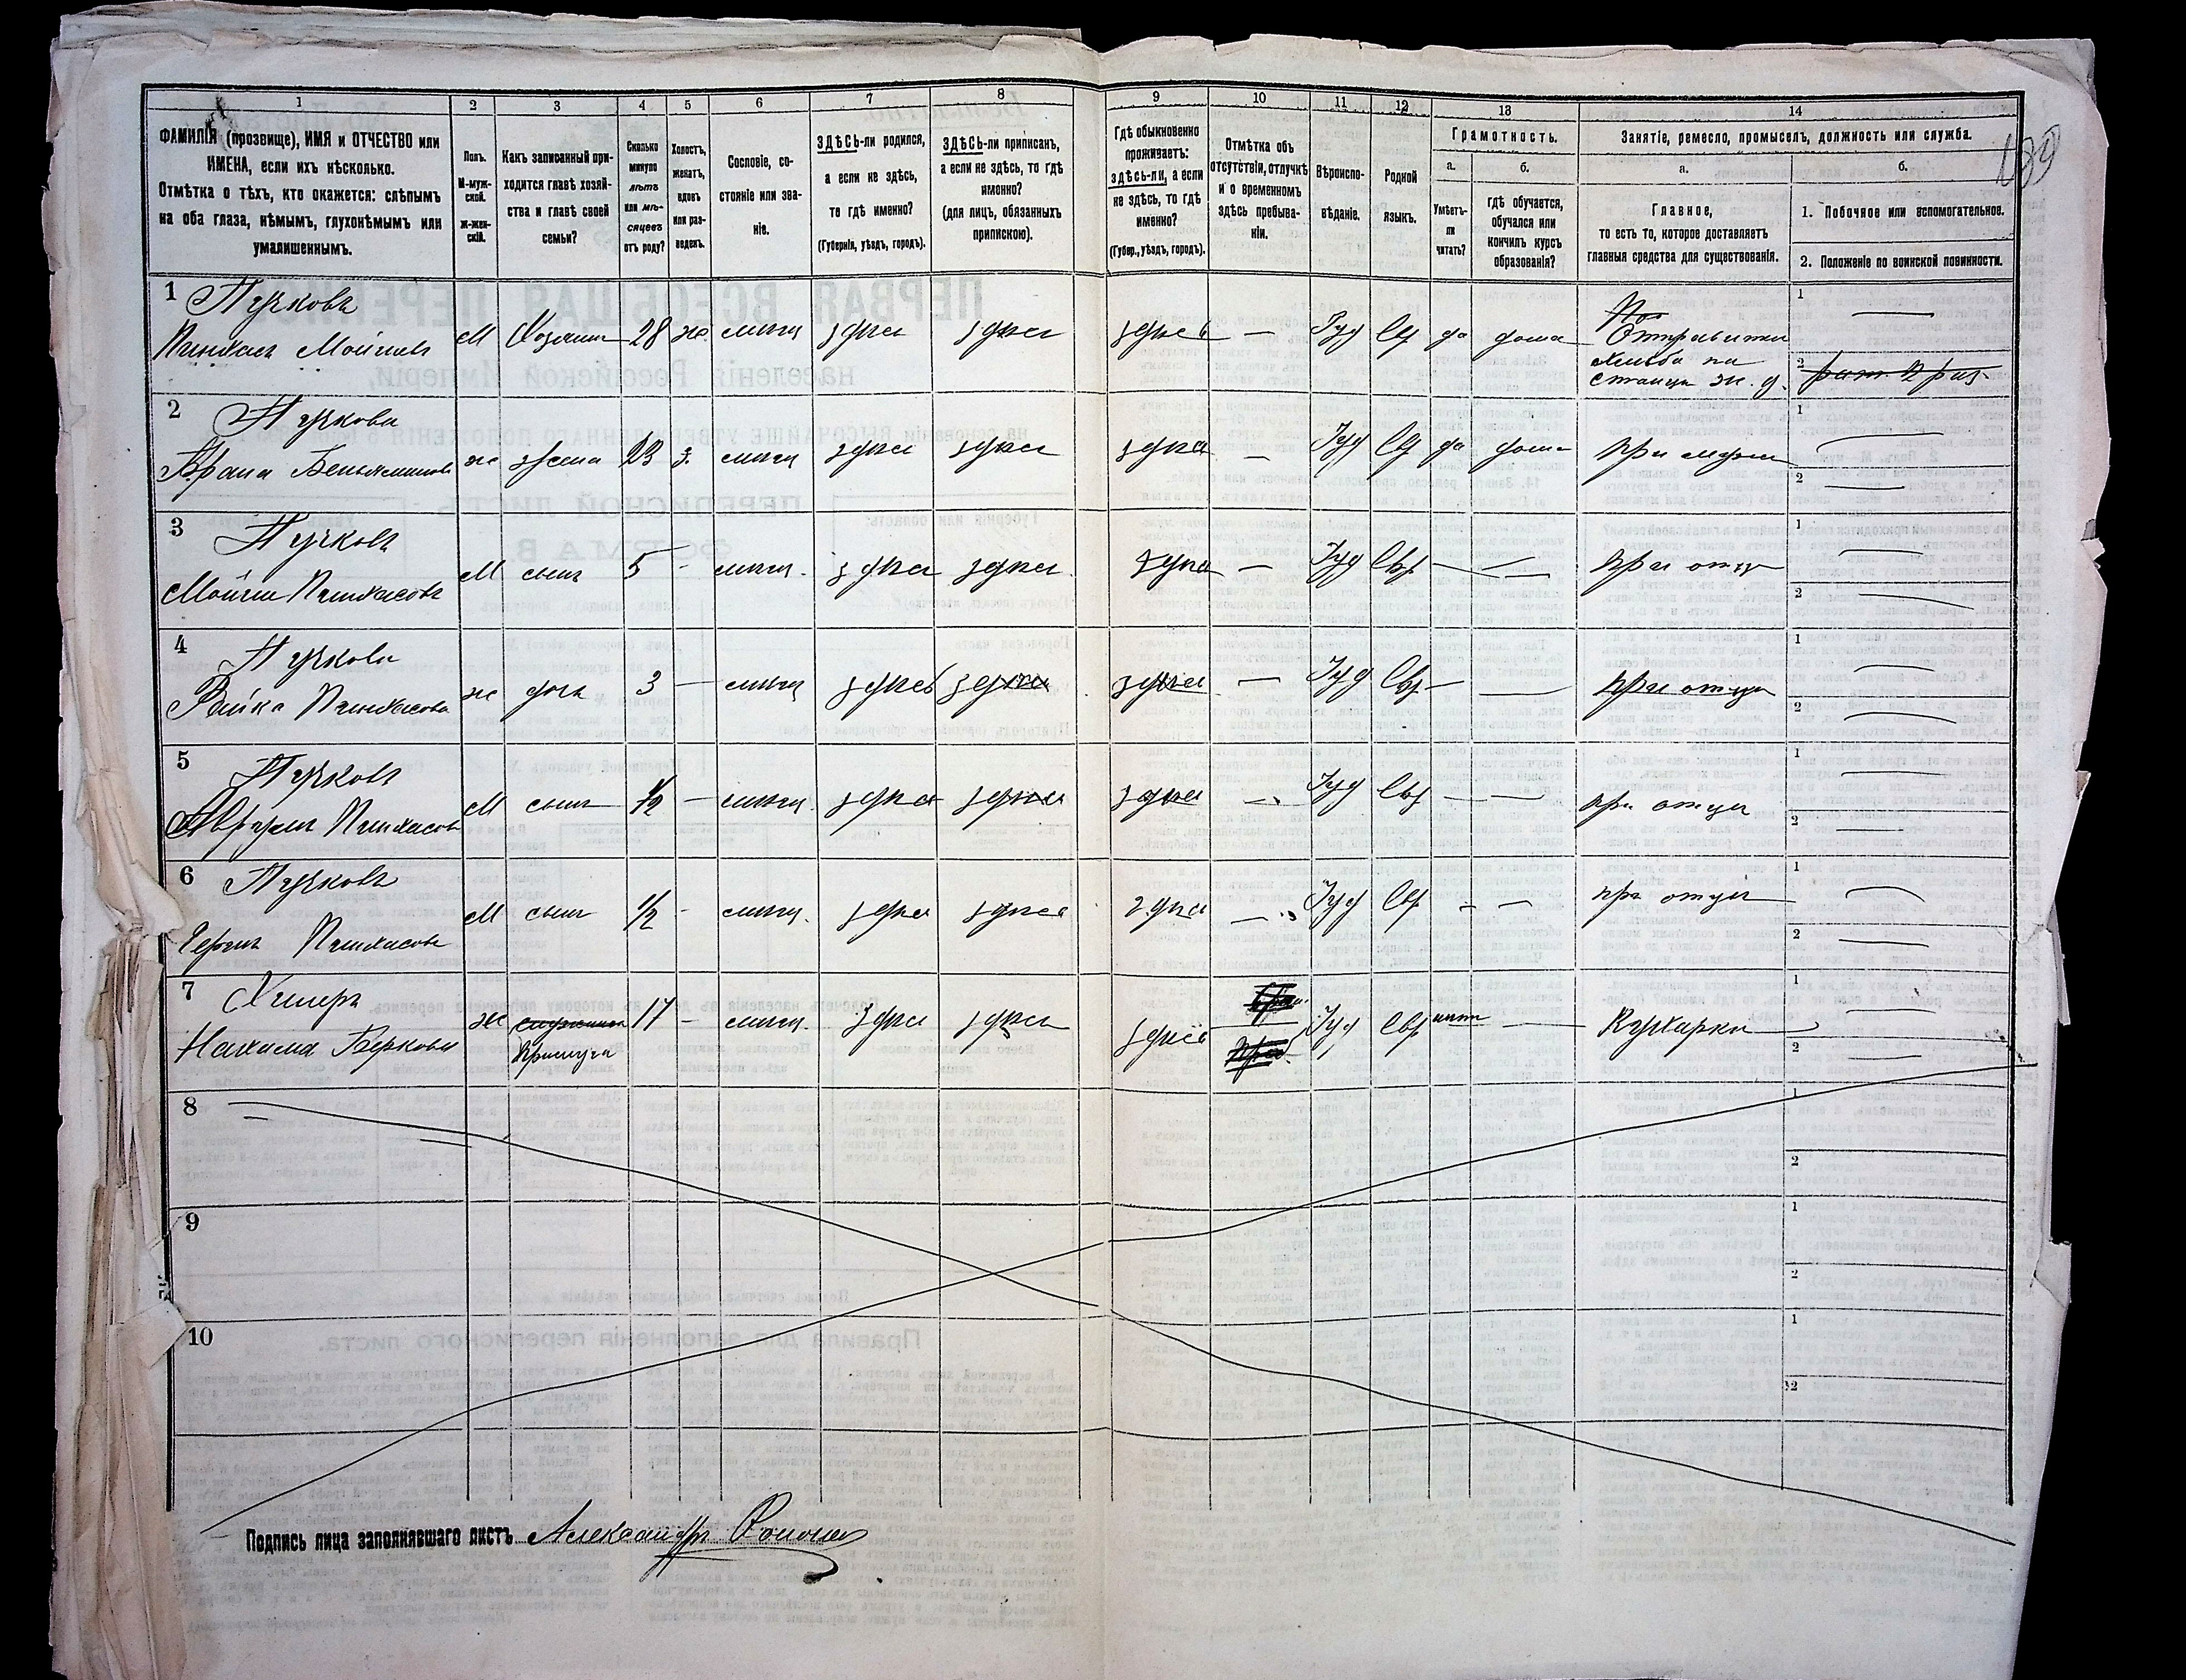 1 2 3 4 5 6 7 8 9 10 11 12 13 14
ФАМИЛІЯ (прозвище), ИМЯ и ОТЧЕСТВО или
ИМЕНА, если ихъ нѣсколько.
Отмѣтка о тѣхъ, кто окажется: слѣпымъ
на оба глаза, нѣмымъ, глухонѣмымъ или
умалишеннымъ.
Полъ.
М-муж-
ской.
Ж-жен-
скій.
Какъ записанный при-
ходится главѣ хозяй-
ства и главѣ своей
семьи?
Сколько
минуло
лѣтъ
или мѣ-
сяцевъ
отъ роду?
Холостъ,
женатъ,
вдовъ
или раз-
веденъ.
Сословіе, со-
стояніе или зва-
ніе.
ЗДѢСЬ-ли родился,
а если не здѣсь,
то гдѣ именно?
(Губернія, уѣздъ, городъ).
ЗДѢСЬ-ли приписанъ,
а если не здѣсь, то гдѣ
именно?
(для лицъ, обязанныхъ
припискою).
Гдѣ обыкновенно
проживаетъ:
здѣсь-ли, а если
не здѣсь, то гдѣ
именно?
(Губер., уѣздъ, городъ).
Отмѣтка объ
отсутствіи, отлучкѣ
и о временномъ
здѣсь пребыва-
ніи.
Вѣроиспо-
вѣданіе.
Родной
языкъ.
Грамотность.
а. б.
Умѣетъ-
ли
читать?
гдѣ обучается,
обучался или
кончилъ курсъ
образованія?
Занятіе, ремесло, промыселъ, должность или служба.
а. б.
Главное,
то есть то, которое доставляетъ
главныя средства для существованія.
1. Побочное или вспомогательное.
2. Положеніе по воинской повинности.
1 Пучковъ
Пинхасъ Мойшевъ М Хозяинъ 28 ж. мѣщ здѣсь здѣсь здѣсь — Іуд Евр да дома
Отправитель
хлѣба на
станціи ж. д.
1 —
2
2 Пучкова
Беньяминова ж жена 23 з. мѣщ здѣсь здѣсь здѣсь — Іуд Евр да дома при мужѣ
1 —
2 —
3 Пучковъ
Мойше Пинхасовъ М сынъ 5 - мѣщ. здѣсь здѣсь здѣсь — Іуд Евр — — при отцѣ
1 —
2 —
4 Пучкова
Рейка Пинхасова ж дочь 3 — мѣщ здѣсь здѣсь здѣсь — Іуд Евр — — при отцѣ
1 —
2 —
5 Пучковъ
Абрумъ Пинхасовъ М сынъ 1/2 — мѣщ. здѣсь здѣсь здѣсь — Іуд Евр — — при отцѣ
1 —
2 —
6 Пучковъ
Пинхасовъ М сынъ 1/2 - мѣщ. здѣсь здѣсь здѣсь — Іуд Евр - — при отцѣ
1 —
2 —
7
Нахама Беркова ж 17 - мѣщ. здѣсь здѣсь здѣсь Іуд Евр нѣт — Кухарка
прислуга
1 —
2 —
8
1
2
9
1
2
10
1
2
Подпись лица заполнявшаго листъ Александръ